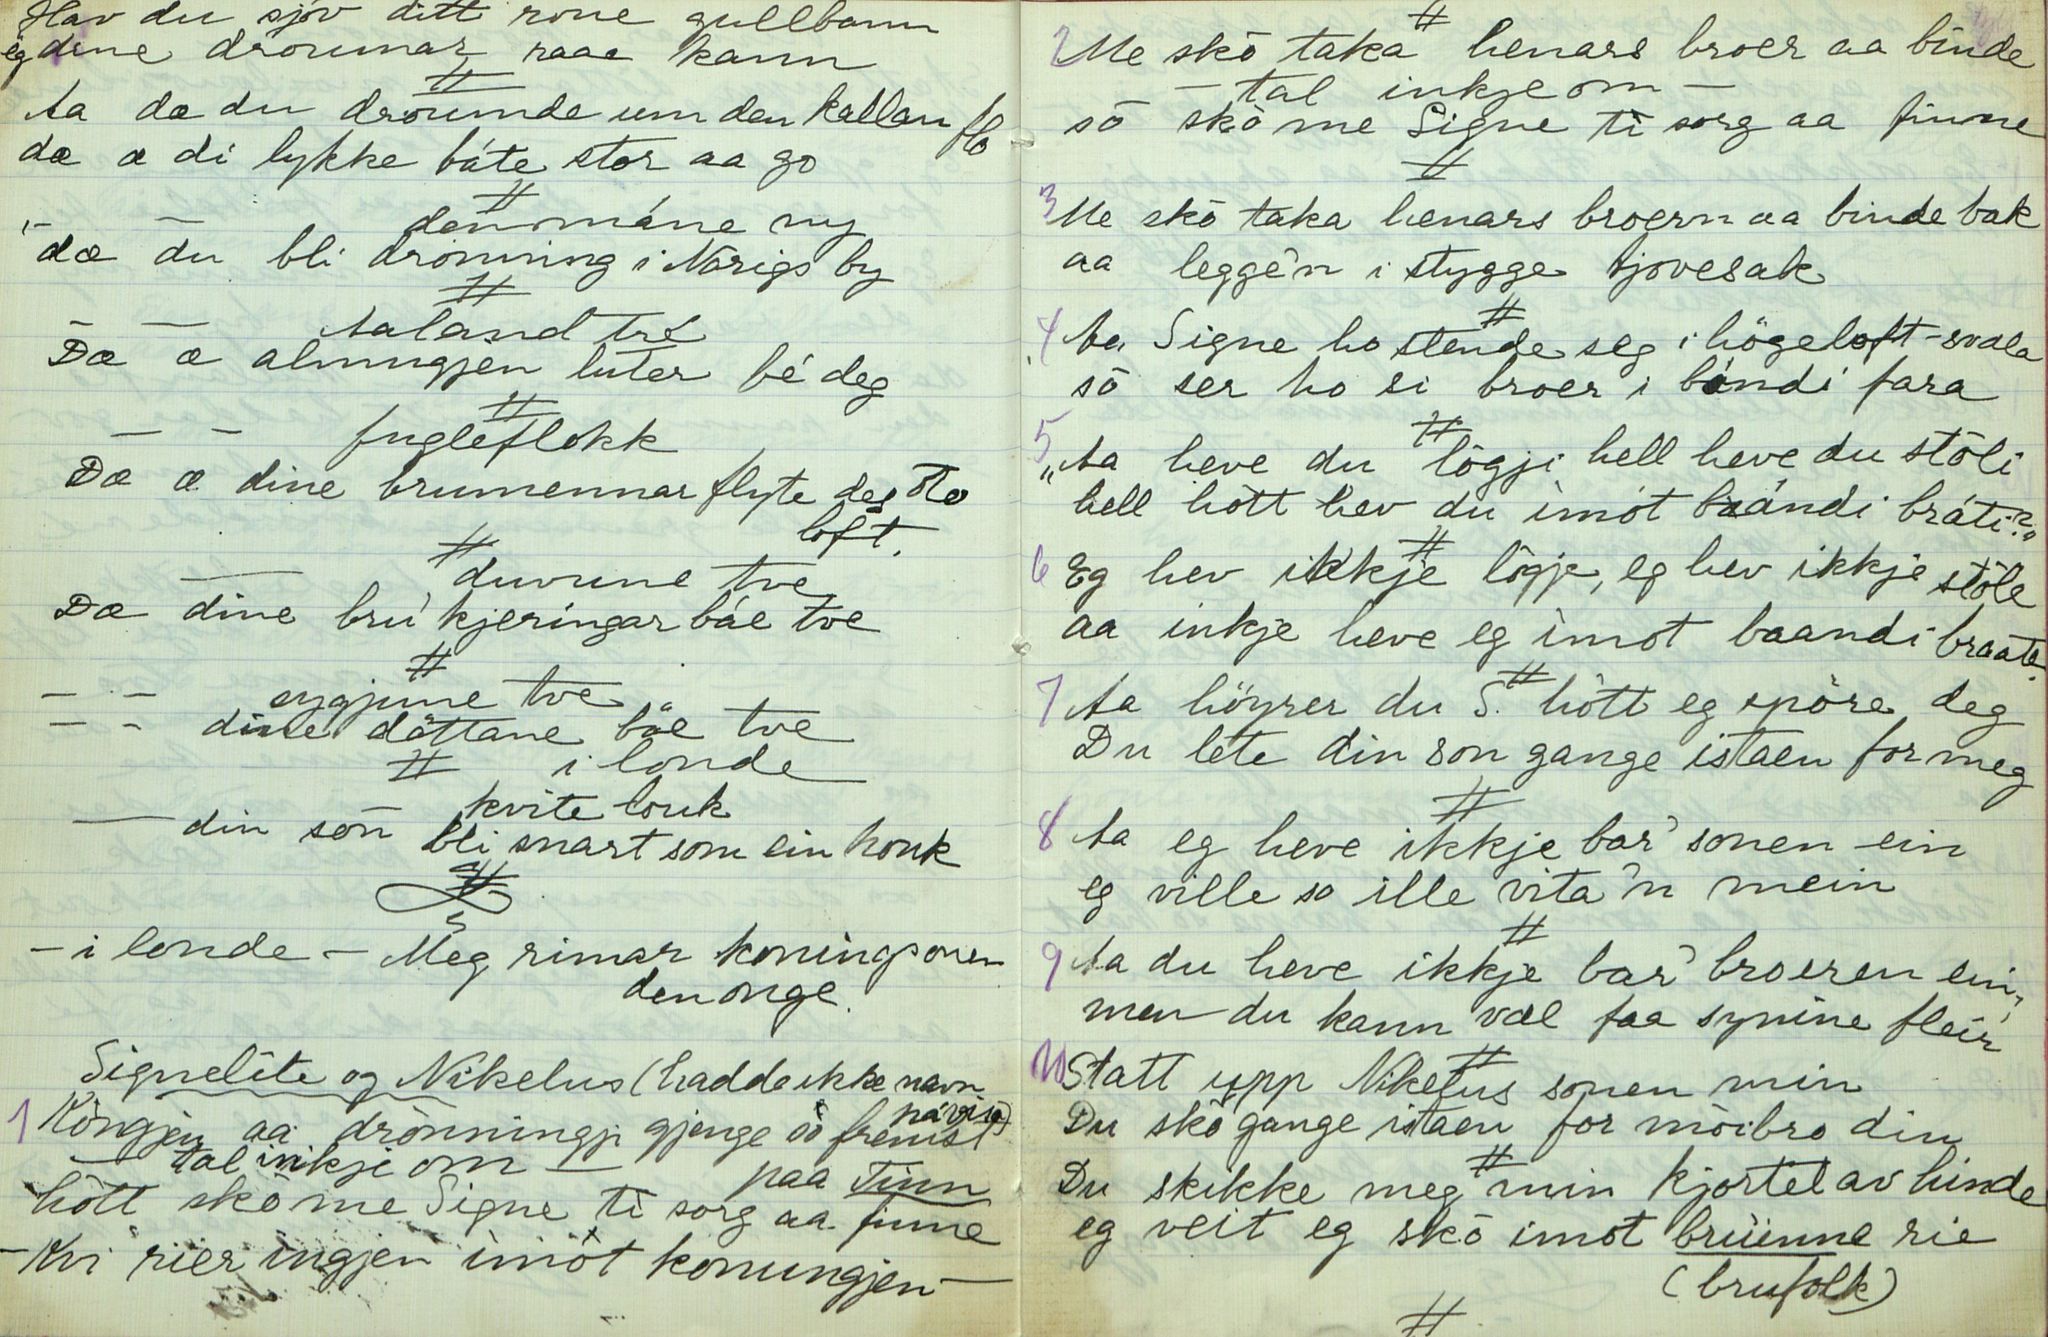 Hav du sjöv ditt roue gullbann
eg dine droumar raae kann
#
Aa dæ du droumde um den kallan flo
dæ æ di lykke báte stor aa go
#
den máne ny
"dæ — du bli dronning i Norigs by
#
— — Aaland tré
Dæ æ almugjen luter bé deg
#
— — fugleflokk
Dæ æ dine brumennar flyte deg òto
loft.
#
— duvune tve
Dæ dine bru'kjeringar báe tve
#
— — ougjune tve
— — dine döttane báe tve
# i londe
kvite louk
— din son bli snart som ein houk
#
– i londe – Meg rimar koningsonen
den onge.
Signelite og Nikelus (hadde ikke navn
på visa)
1 Kòngjen aa dronningji gjenge só fremst
— tal inkje om — paa Tinn
hòtt skò me Signe ti sorg aa finne
– Kvi rier ingjen imòt konungjen —
2 Me skò taka henars broer aa binde
— tal inkje om —
sò skò me Signe ti sorg aa finne
#
3 Me skò taka henars broern aa binde bak
aa legge'n i stygge tjovesak
#
4 Aa Signe ho stende seg i högeloft-svala
sò ser ho si broer i bándi fara
#
5 „Aa heve du lògji hell heve du stòli
hell hòtt hev du imót baándi bráti?"
#
6 Eg hev ikkje lògje, eg hev ikkje stòle
aa inkje heve eg imot baandi braate.
#
7 Aa höyrer du S. hòtt eg spòre deg
Du lete din son gange istaen for meg
#
8 Aa eg heve ikkje bar' sonen ein
eg ville so ille vita'n mein
#
9 Aa du heve ikkje bar' broeren ein,
men du kann væl faa synine fleir'
#
10 Statt upp Nikelus sonen min
Du skò gange istaen for mòibro din
#
Du skikke meg min kjortel av hinde
eg veit eg skò imot brüinne rie
(brufolk)
#